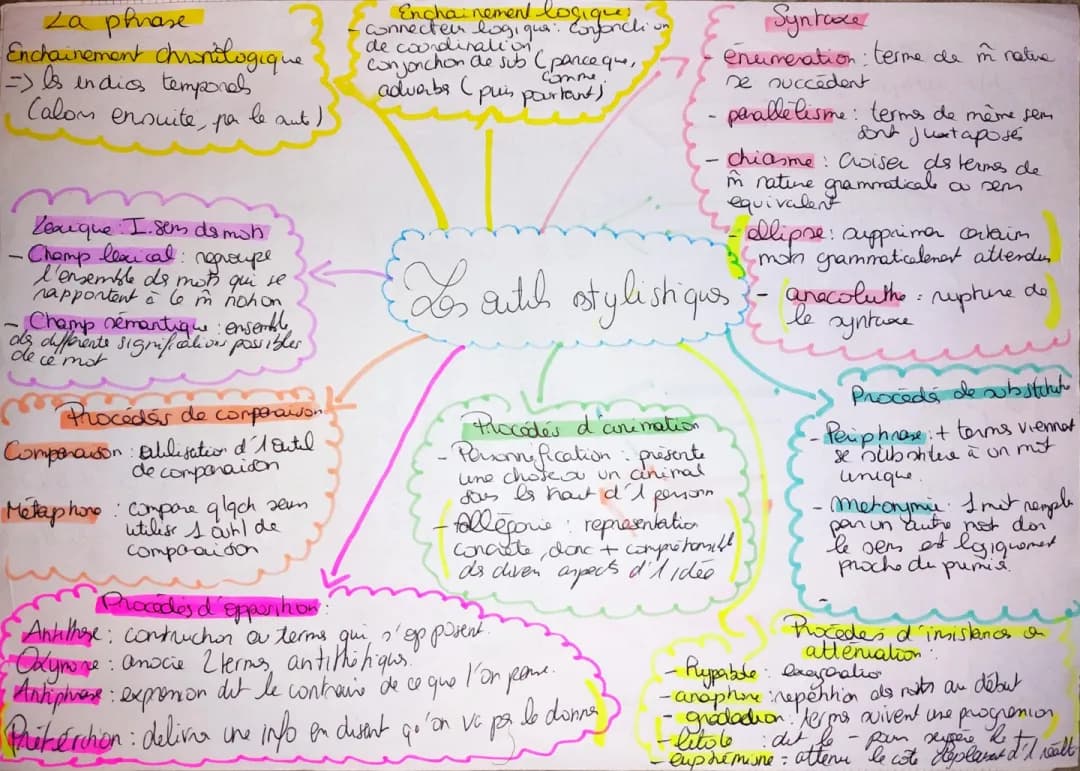 La phrase
Enchainement chronologique
=> les indices temporels
(alors ensuite, par la suite)
Enchainement logique:
- connecteur logique: conjonction
de coordination
conjonction de sub (parce que,
comme
adverbs (puis pourtant)
Syntaxe
- énumération : terme de m̂ nature
se succèdent
- parallélisme : termes de même sens
sont juxtaposés
- chiasme : croiser ds termes de
m̂ nature grammaticale ou sens
equivalent
- ellipse : supprimer certains
mots grammaticalement attendus
- anacoluthe : rupture de
la syntaxe
Lexique : I. sens ds mots
- Champ lexical : regroupe
l'ensemble ds mots qui se
rapportent à la m̂ notion
- Champ sémantique : ensemble
ds différente significations possibles
de ce mot
Les outils stylistiques
Procédés de comparaison
Comparaison : utilisation d'1 outil
de comparaison
Métaphore : compare qlqch sans
utiliser 1 outil de
comparaison
Procédés d'animation
- Personnification : présente
une chose ou un animal
sous les trait d'1 personn
- Allégorie : representation
concrète, donc + compréhensibl
ds divers aspects d'1 idée
Procédés de substitut
- Periphrase : + terms viennent
se substituer à un mot
unique.
- Metonymie : 1 mot remplac
par un autre mot dont
le sens est logiquement
proche du premier.
Procédés d'opposition :
Antithèse : construction ou terms qui s'opposent.
Oxymore : associe 2 termes antithétiques.
Antiphrase : expression dit le contraire de ce que l'on pense.
Prétérition : délivre une info en disant qu'on va pas le donner
Procédés d'insistance ou
atténuation :
- Hyperbole : exagération
- anaphore : répétition ds mots au début
- gradation : terms suivent une progression
- litote : dit le - pour suggérer le +
- euphémisme : attenue le coté déplaisant d'1 réalit